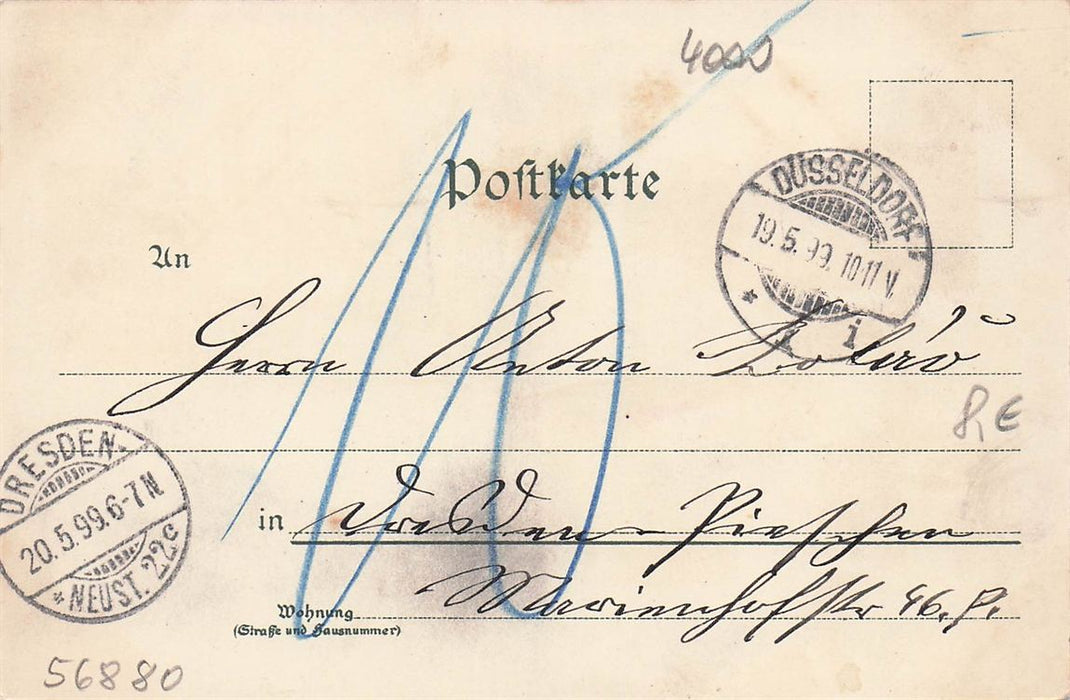 4000
Postkarte
DÜSSELDORF
19.5.99. 10-11 V.
* 1 i
An
Herrn Anton
8,€
DRESDEN-
20.5.99.6-7N
* NEUST. 22c
10
in Dresden-Pieschen
Marienhofstr 46. P.
Wohnung
(Straße und Hausnummer)
56880